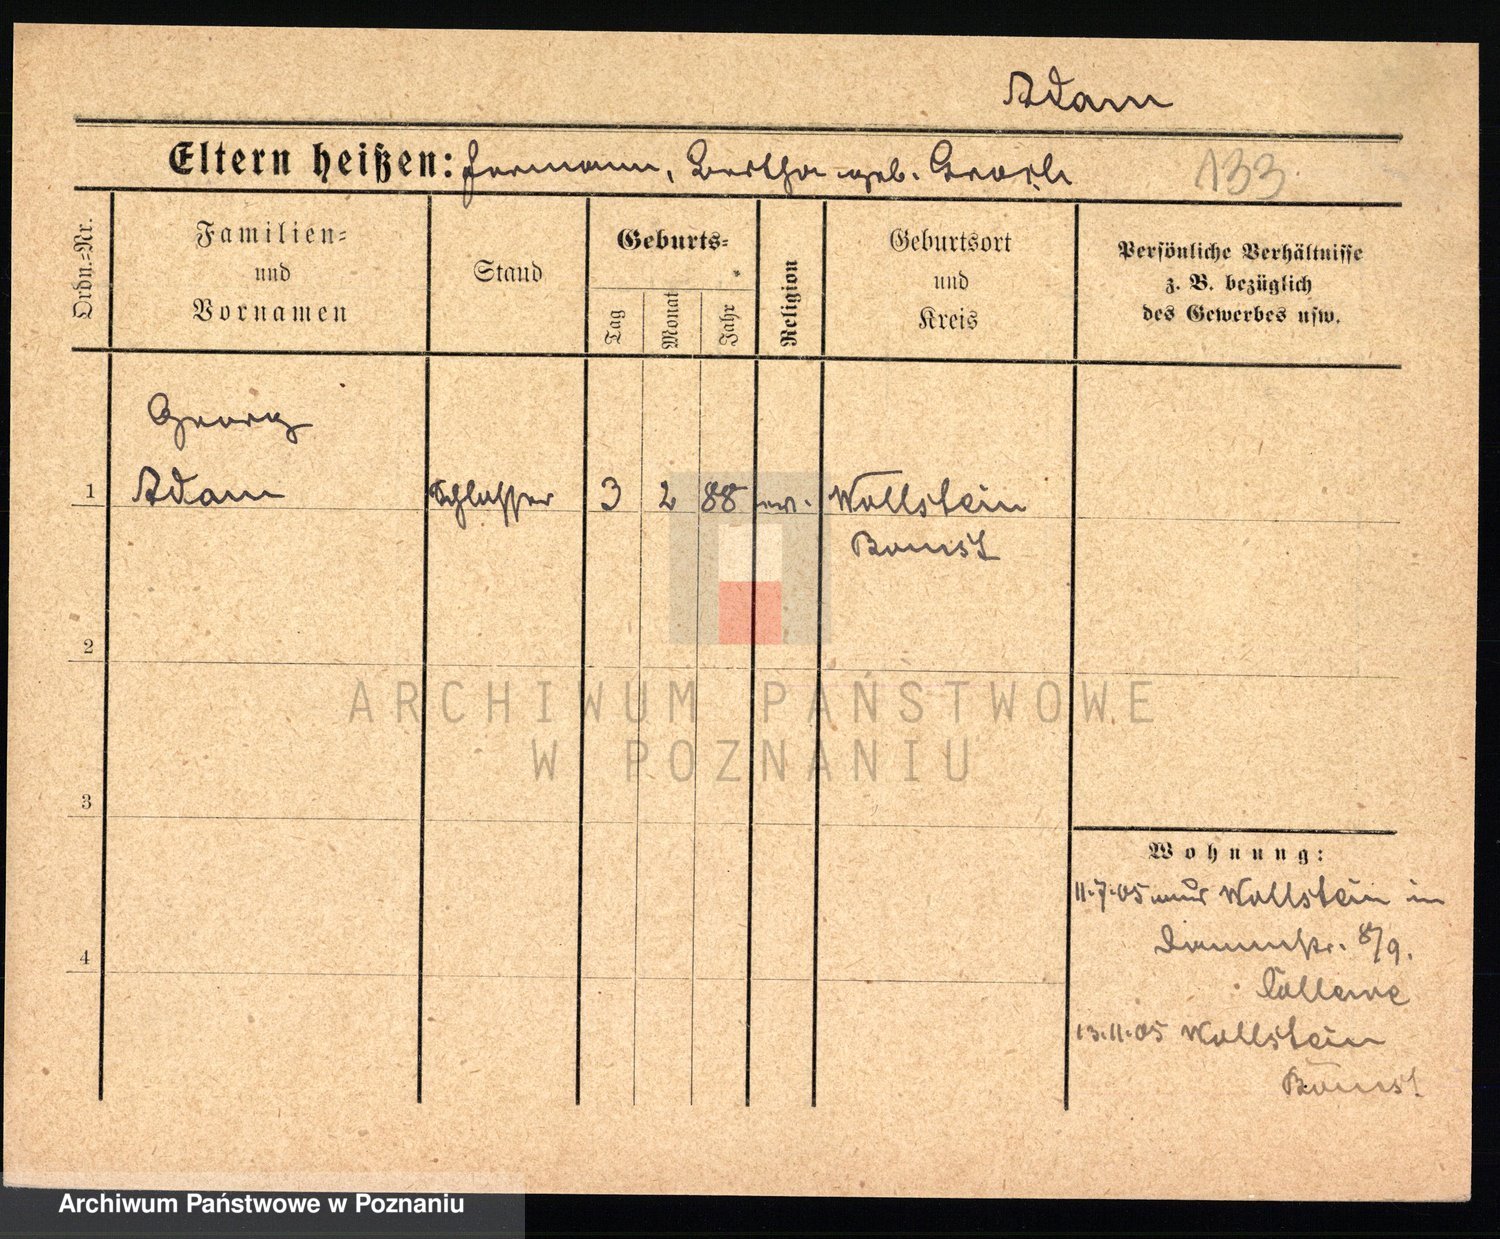 Adam
Eltern heißen: Hermann, Bertha geb.
133
Ordn.=Nr.
Familien=
und
Vornamen
Stand
Geburts=
Tag
Monat
Jahr
Religion
Geburtsort
und
Kreis
Persönliche Verhältnisse
z. B. bezüglich
des Gewerbes usw.
Georg
1 Adam Schlosser 3 2 88 ev. Wollstein
Bomst
2
3
4
Wohnung:
11.7.05 aus Wollstein in
Dammstr. 8/9.
13.11.05 Wollstein
Bomst
ARCHIWUM PAŃSTWOWE
W POZNANIU
Archiwum Państwowe w Poznaniu